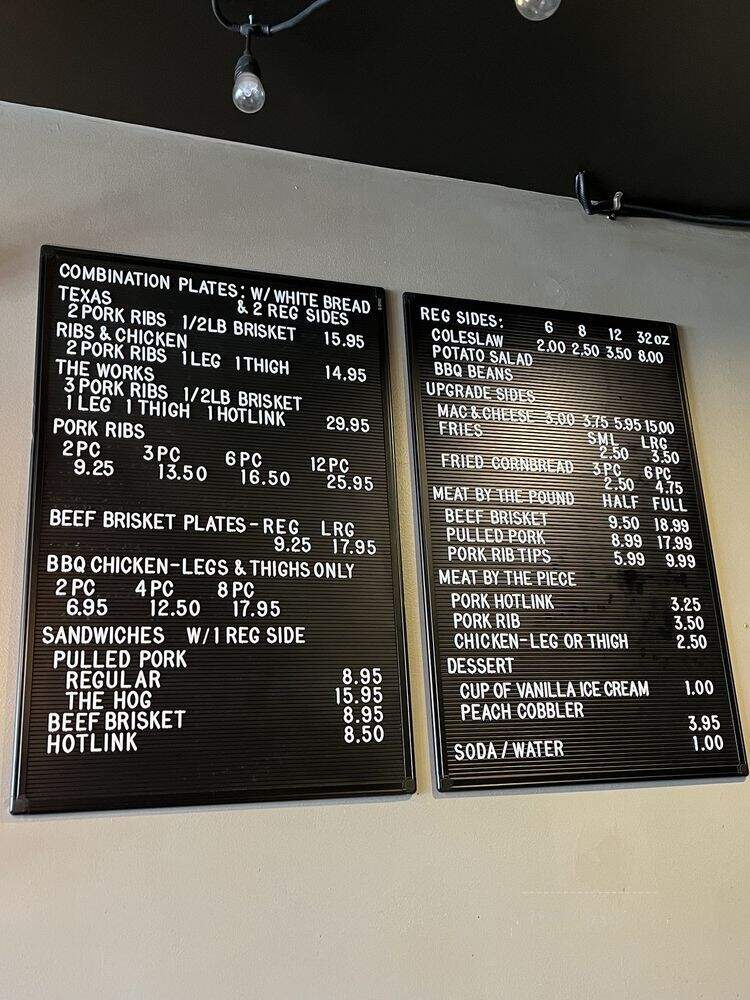 COMBINATION PLATES: W/ WHITE BREAD
& 2 REG SIDES
TEXAS
2 PORK RIBS 1/2LB BRISKET 15.95
RIBS & CHICKEN
2 PORK RIBS 1 LEG 1 THIGH 14.95
THE WORKS
3 PORK RIBS 1/2LB BRISKET
1 LEG 1 THIGH 1 HOTLINK 29.95
PORK RIBS
2PC 3PC 6PC 12PC
9.25 13.50 16.50 25.95
BEEF BRISKET PLATES - REG LRG
9.25 17.95
BBQ CHICKEN-LEGS & THIGHS ONLY
2PC 4PC 8PC
6.95 12.50 17.95
SANDWICHES W/1 REG SIDE
PULLED PORK
REGULAR 8.95
THE HOG 15.95
BEEF BRISKET 8.95
HOTLINK 8.50
REG SIDES: 6 8 12 32oz
COLESLAW 2.00 2.50 3.50 8.00
POTATO SALAD
BBQ BEANS
UPGRADE SIDES
MAC & CHEESE 3.00 3.75 5.95 15.00
FRIES SML LRG
2.50 3.50
FRIED CORNBREAD 3PC 6PC
2.50 4.75
MEAT BY THE POUND HALF FULL
BEEF BRISKET 9.50 18.99
PULLED PORK 8.99 17.99
PORK RIB TIPS 5.99 9.99
MEAT BY THE PIECE
PORK HOTLINK 3.25
PORK RIB 3.50
CHICKEN-LEG OR THIGH 2.50
DESSERT
CUP OF VANILLA ICE CREAM 1.00
PEACH COBBLER
3.95
SODA / WATER 1.00